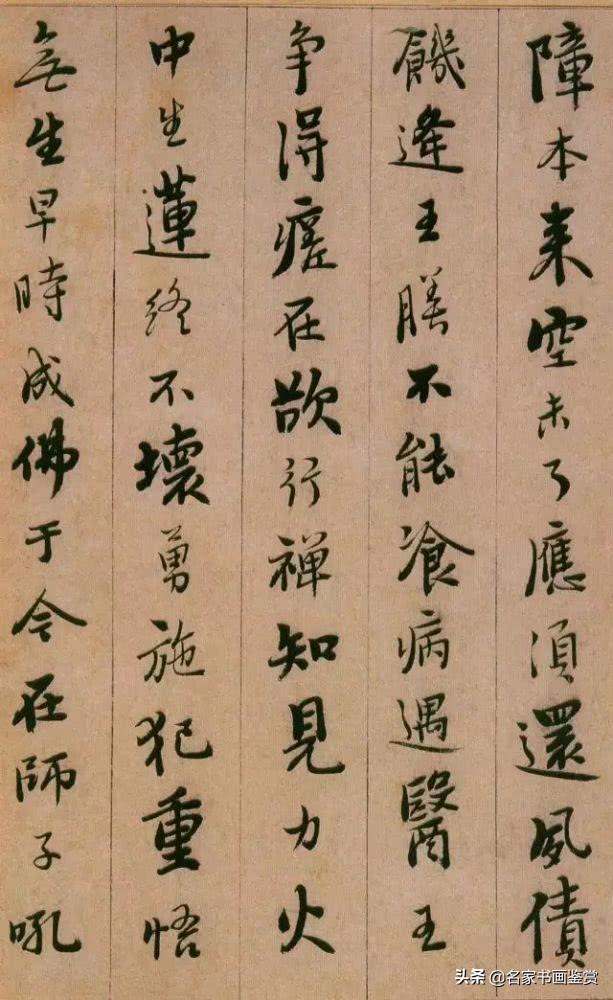 障本来空未了應須還夙債
饑逢王膳不能飡病遇醫王
争得瘥在欲行禪知見力火
中生蓮終不壞勇施犯重悟
無生早時成佛于今在師子吼
头条 @名家书画鉴赏